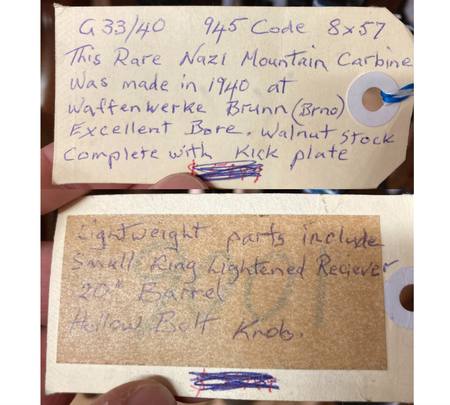 G 33/40 945 Code 8x57
This Rare Nazi Mountain Carbine
Was made in 1940 at
Waffenwerke Brunn (Brno)
Excellent Bore. Walnut Stock
Complete with Kick plate
Lightweight parts include
Small Ring Lightened Reciever
20" Barrel
Hollow Bolt Knob.